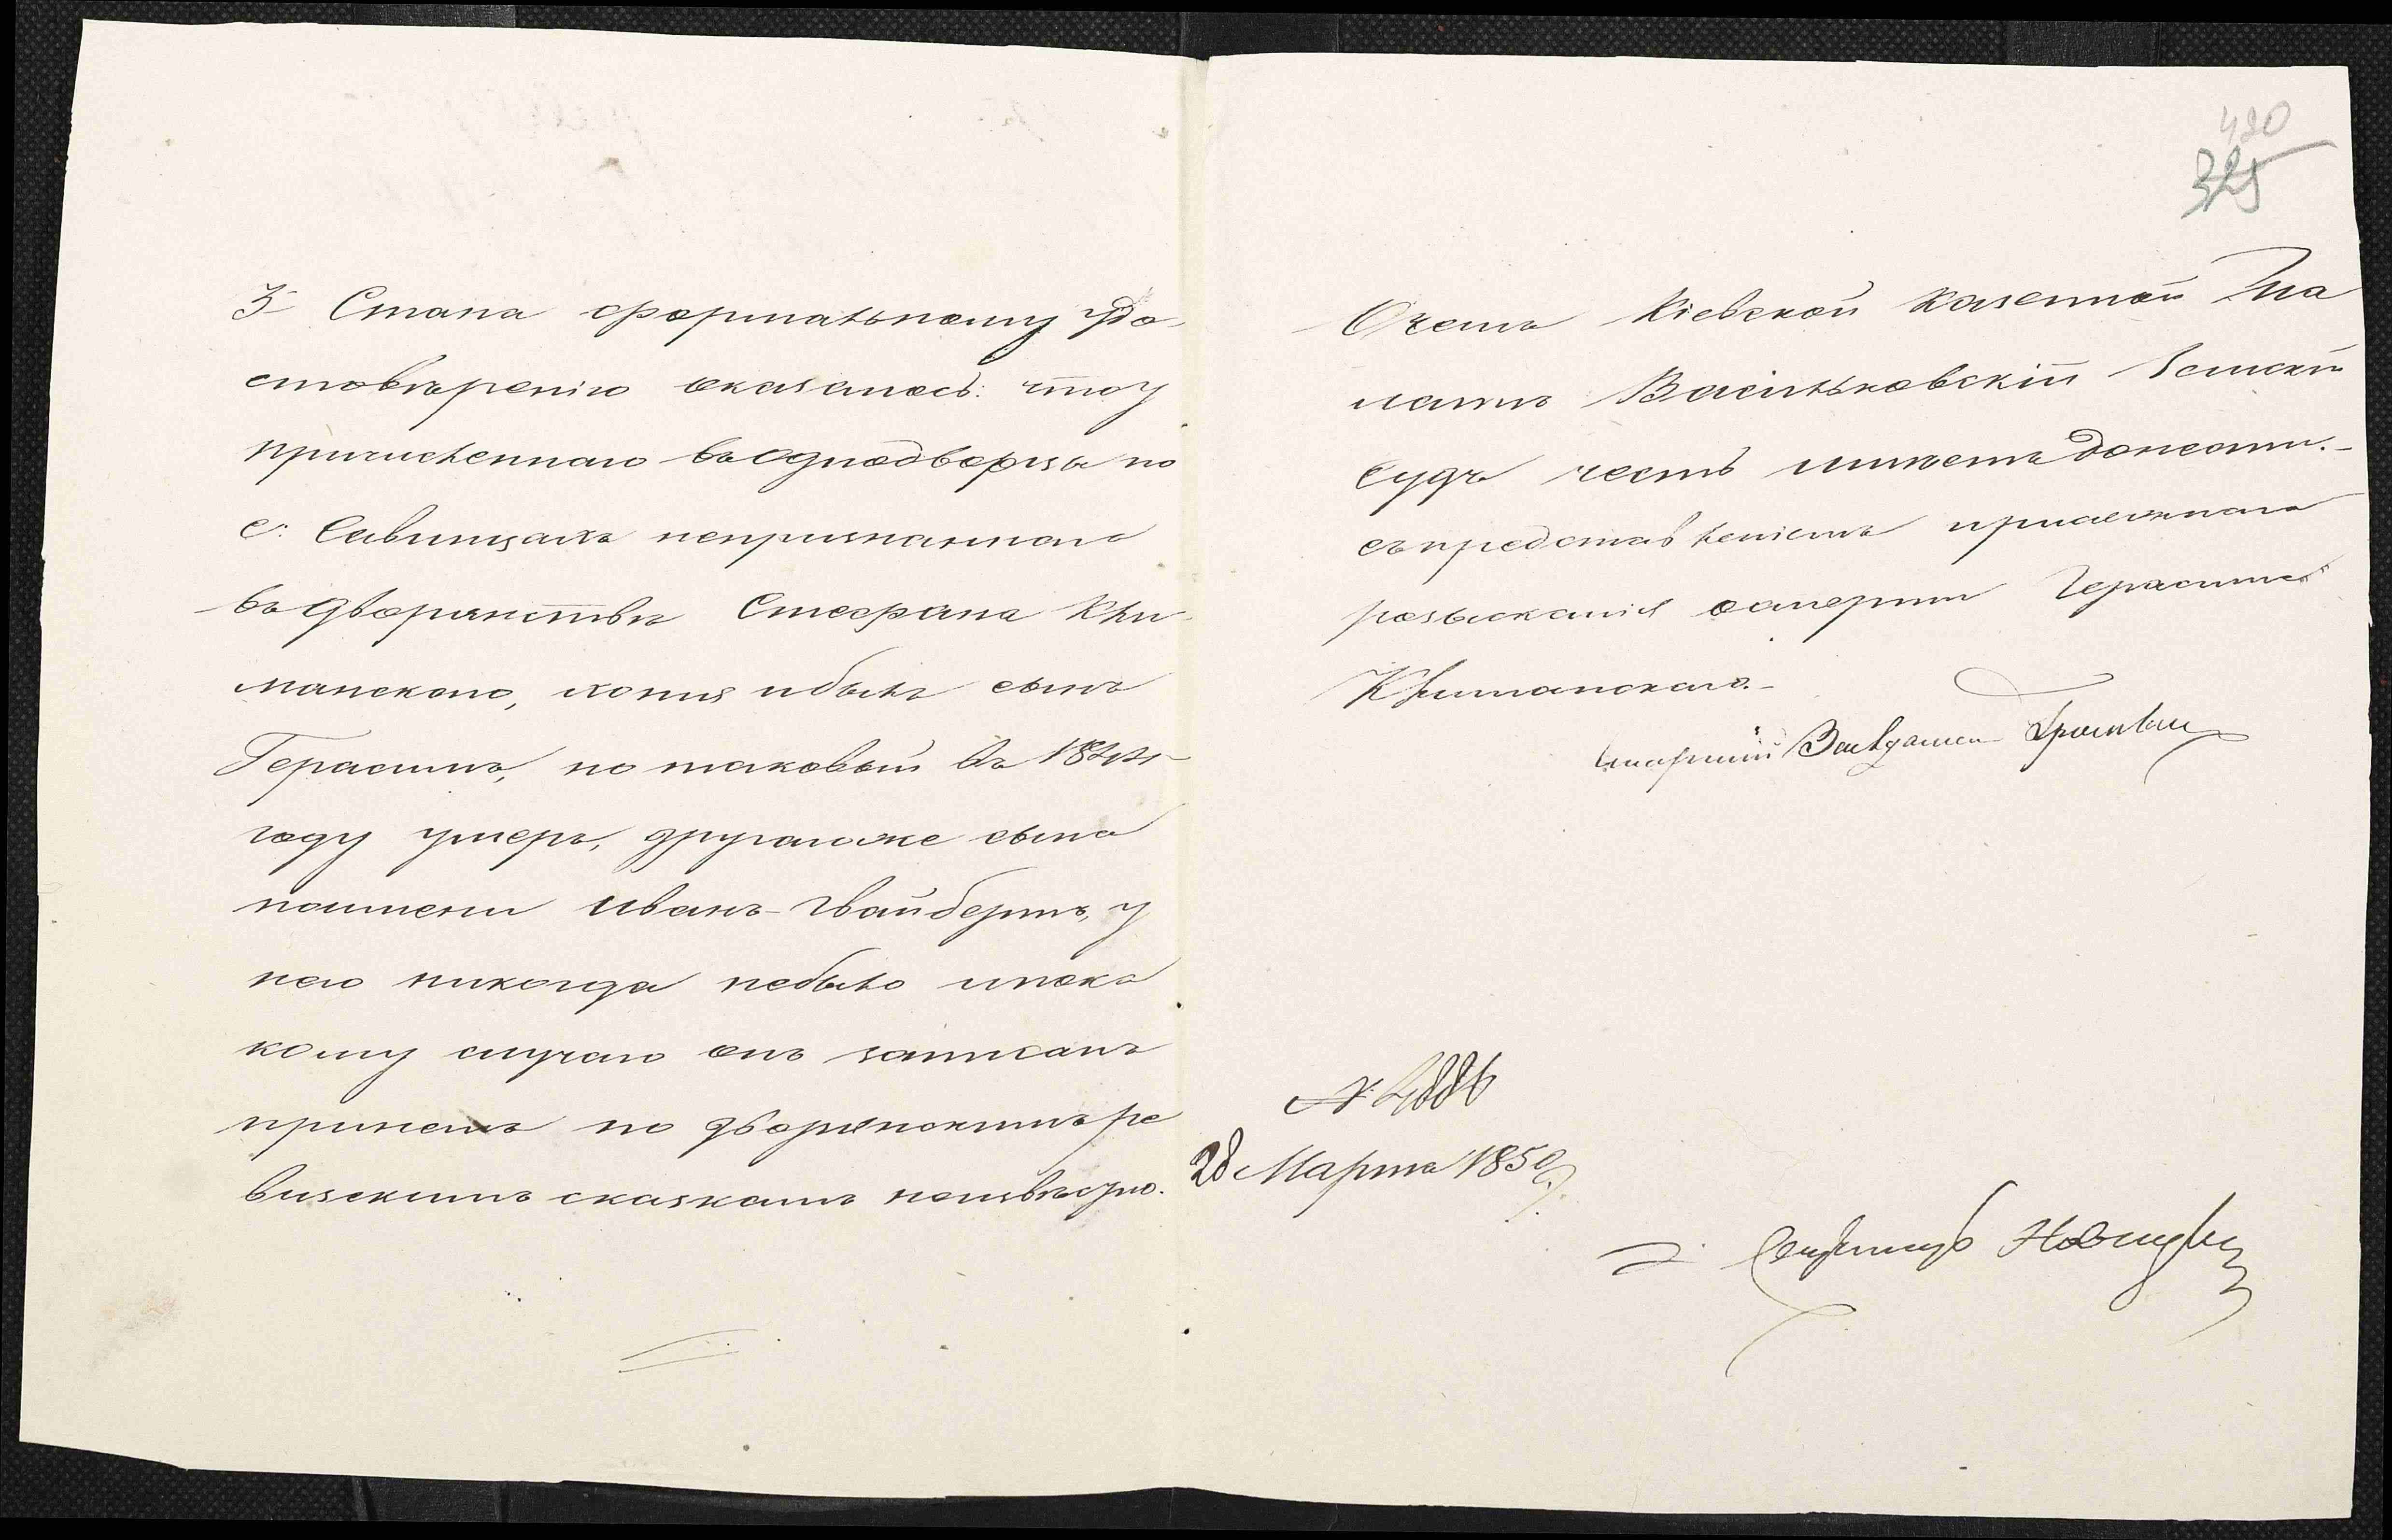 3 Стана формальному удо-
стовѣренію оказалось: что у
причисленнаго въ однодворцы по
с: Савинцахъ непризнаннаго
въ дворянствѣ Стефана Кли-
манского, хотя и былъ сынъ
Герасимъ, но таковый въ 1844
году умеръ, другаго же сына
поимени Иванъ-Гвайбертъ, у
него никогда небыло и пока
кому случаю онъ записанъ
при немъ по дворянскимъ ре
визскимъ сказкамъ неизвѣстно.
420
325
О чемъ Кіевской Казенной Па
латѣ Васильковскій Земскій
Судъ честь имѣетъ донести.-
съ представленіемъ приложеннаго
розысканія о смерти Герасима
Климанского.-
Старшій Засѣдатель
№ 4886
28 Марта 1850 г.
Секретарь